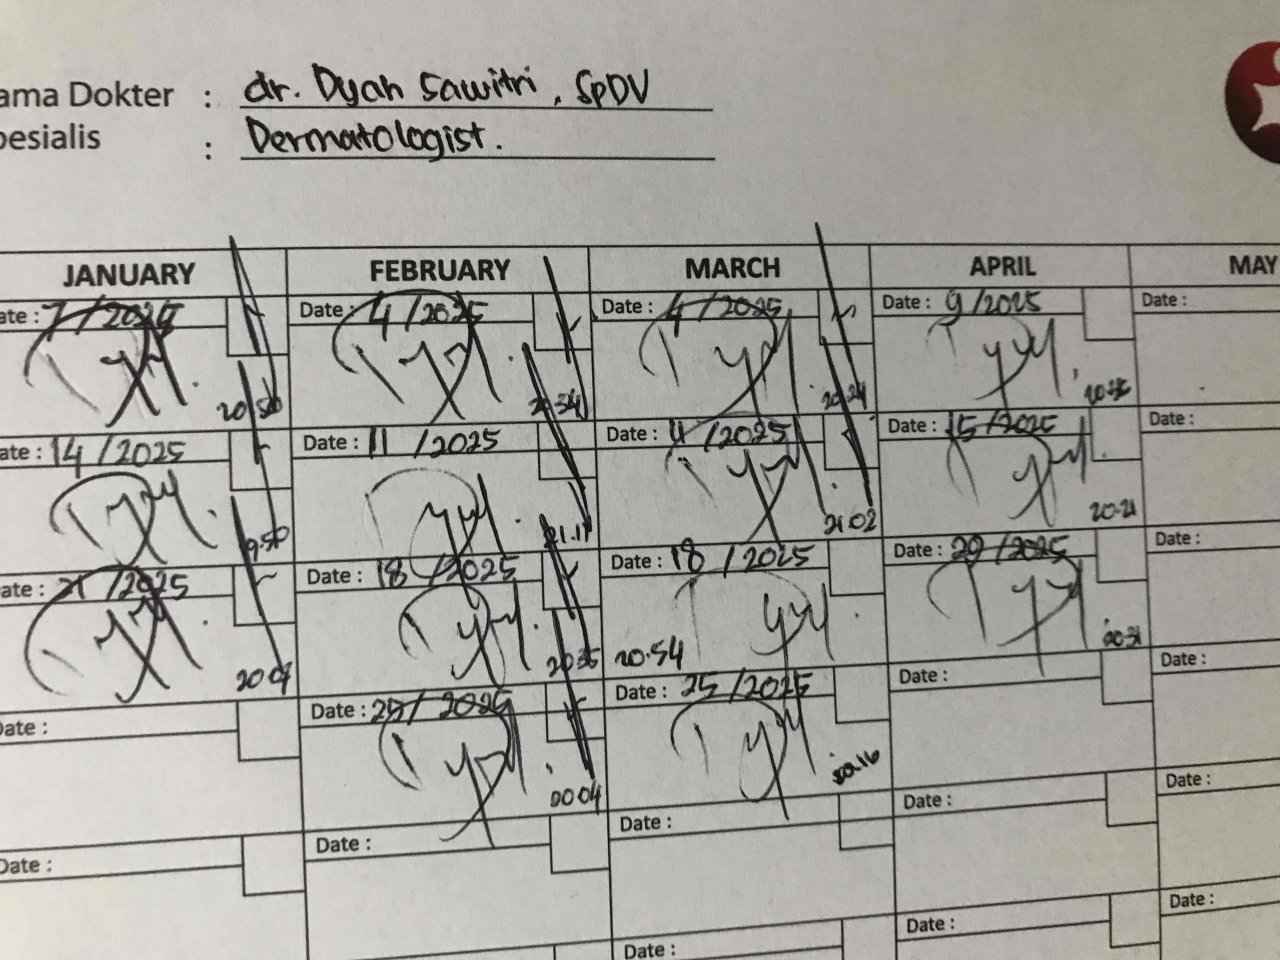 ama Dokter : dr. Dyah Sawitri, SpDV
pesialis : Dermatologist.
JANUARY FEBRUARY MARCH APRIL MAY
ate : 7/2025 Date : 4/2025 Date : 4/2025 Date : 9/2025 Date :
20.50 20.34 20.24
ate : 14/2025 Date : 11/2025 Date : 11/2025 Date : 15/2025 Date :
19.50 21.11 21.02 20.21
ate : 21/2025 Date : 18/2025 Date : 18/2025 Date : 29/2025 Date :
20.07 20.35 20.54
Date : Date : 25/2025 Date : 25/2025 Date : Date :
Date : Date : Date : Date : Date :
Date : Date : Date :